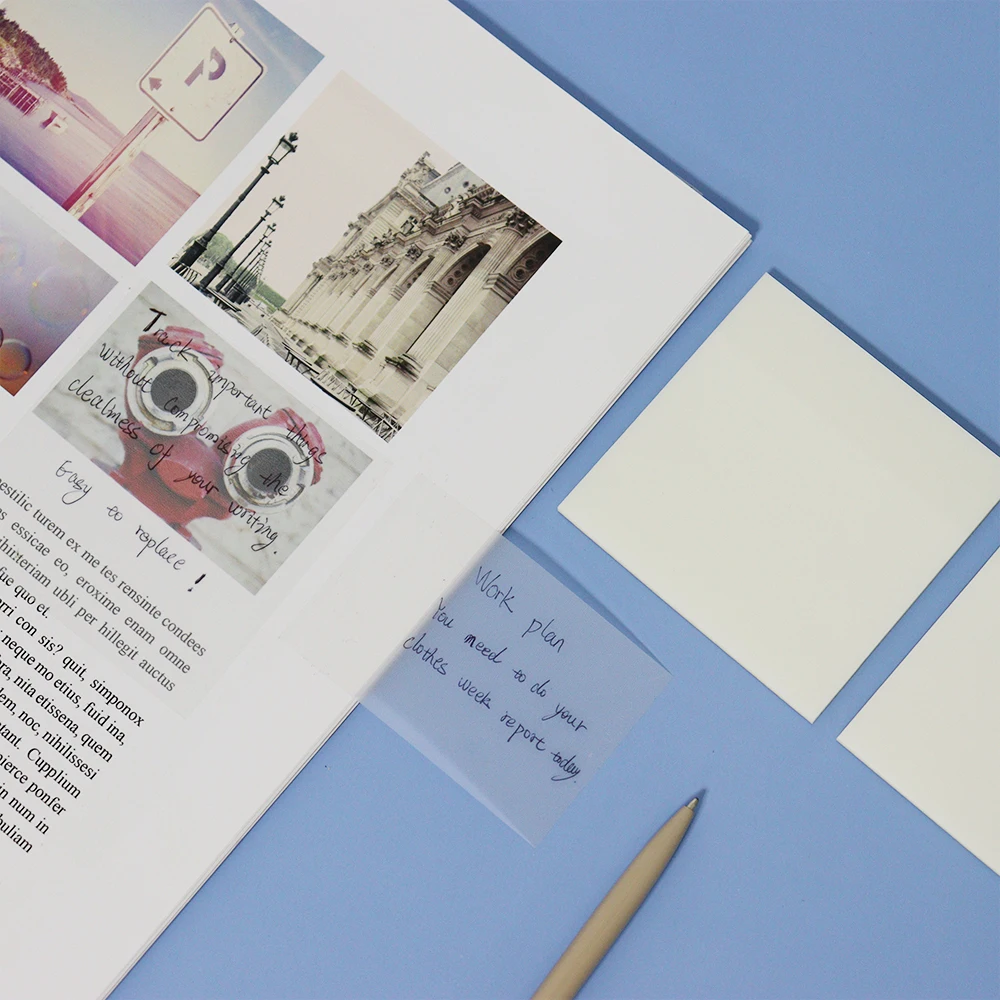 Track important things
without compromising the
clealiness of your writing.
Easy to replace!
estilic turem ex me tes rensinte condees
s essicae eo, eroxime enam omne
teriam ubli per hillegit auctus
fue quo et.
rri con sis? quit, simponox
neque mo etius, fuid ina,
ra, nita etissena, quem
dem, noc, nihilissesi
tant. Cupplium
nierce ponfer
in num in
buliam
Work plan
You need to do your
clothes week report today.